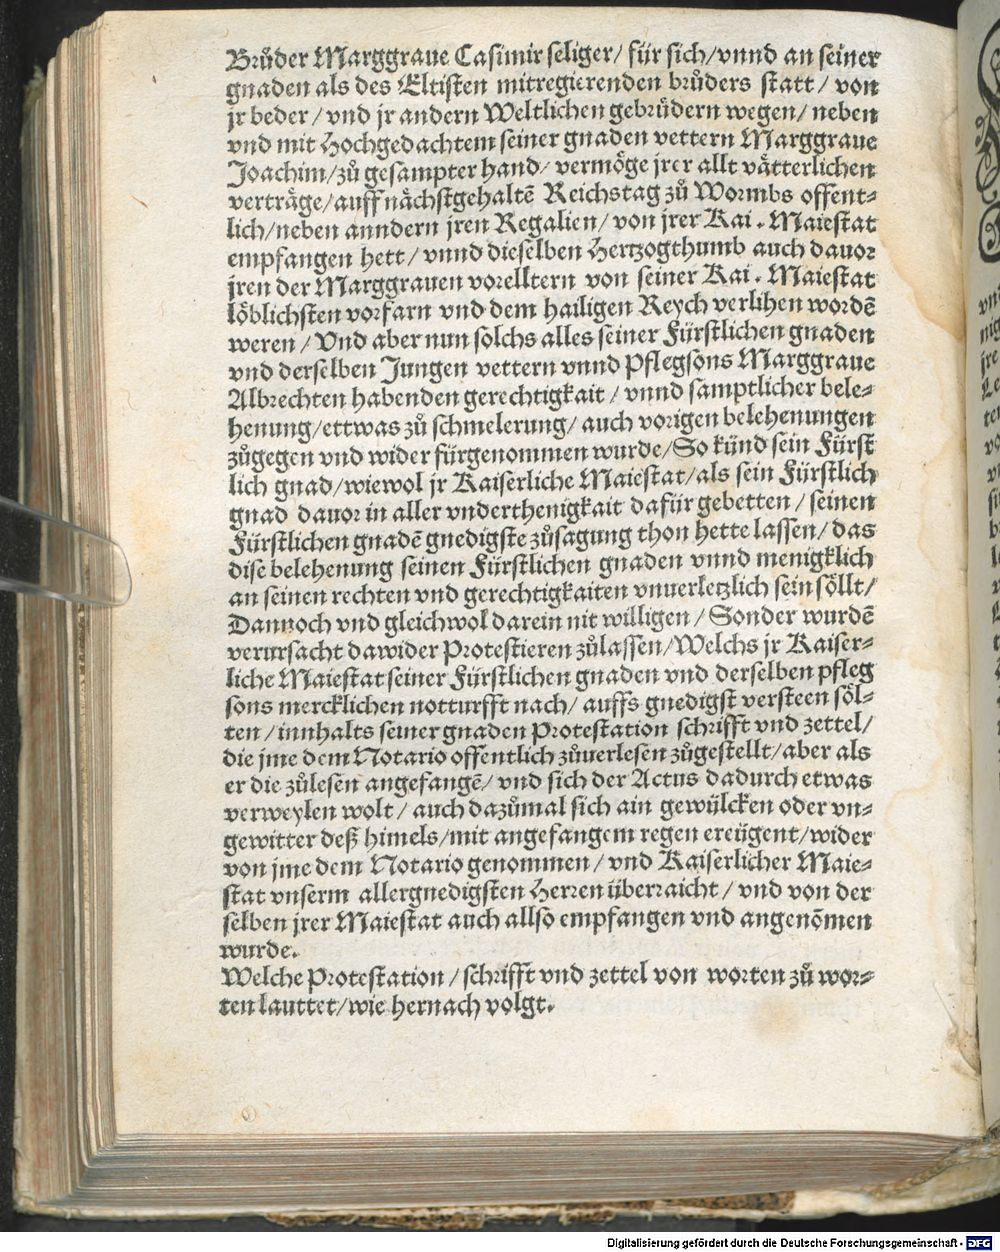 Brůder Marggraue Casimir seliger/ für sich/vnnd an seiner
gnaden als des Eltisten mitregierenden brůders statt/ von
jr beder/ vnd jr andern Weltlichen gebrüdern wegen/ neben
vnd mit Hochgedachtem seiner gnaden vettern Marggraue
Joachim/zů gesampter hand/ vermöge jrer allt vätterlichen
verträge/auff nächstgehaltē Reichstag zů Wormbs offent⸗
lich/neben anndern jren Regalien/ von jrer Kai. Maiestat
empfangen hett/ vnnd dieselben Hertzogthumb auch dauor
jren der Marggrauen vorelltern von seiner Kai. Maiestat
löblichsten vorfarn vnd dem hailigen Reych verlihen wordē
weren/ Vnd aber nun solchs alles seiner Fürstlichen gnaden
vnd derselben Jungen vettern vnnd Pflegsons Marggraue
Albrechten habenden gerechtigkait/ vnnd samptlicher bele⸗
henung/ettwas zů schmelerung/ auch vorigen belehenungen
zůgegen vnd wider fürgenommen wurde/So künd sein Fürst
lich gnad/wiewol jr Kaiserliche Maiestat/als sein Fürstlich
gnad dauor in aller vnderthenigkait dafür gebetten/ seinen
Fürstlichen gnadē gnedigste zůsagung thon hette lassen/ das
dise belehenung seinen Fürstlichen gnaden vnnd menigklich
an seinen rechten vnd gerechtigkaiten vnuerletzlich sein söllt/
Dannoch vnd gleichwol darein nit willigen/ Sonder wurdē
verursacht dawider Protestieren zůlassen/Welchs jr Kaiser⸗
liche Maiestat seiner Fürstlichen gnaden vnd derselben pfleg
sons mercklichen notturfft nach/ auffs gnedigst versteen söl⸗
ten/ innhalts seiner gnaden Protestation schrifft vnd zettel/
die jme dem Notario offentlich zůuerlesen zůgestellt/aber als
er die zůlesen angefangē/ vnd sich der Actus dadurch etwas
verweylen wolt/ auch dazůmal sich ain gewülcken oder vn⸗
gewitter deß himels/mit angefangem regen ereügent/wider
von jme dem Notario genommen/ vnd Kaiserlicher Maie⸗
stat vnserm allergnedigsten Herren überraicht/ vnd von der
selben jrer Maiestat auch allso empfangen vnd angenōmen
wurde.
Welche Protestation/schrifft vnd zettel von worten zů wor⸗
ten lauttet/wie hernach volgt.
Digitalisierung gefördert durch die Deutsche Forschungsgemeinschaft - DFG